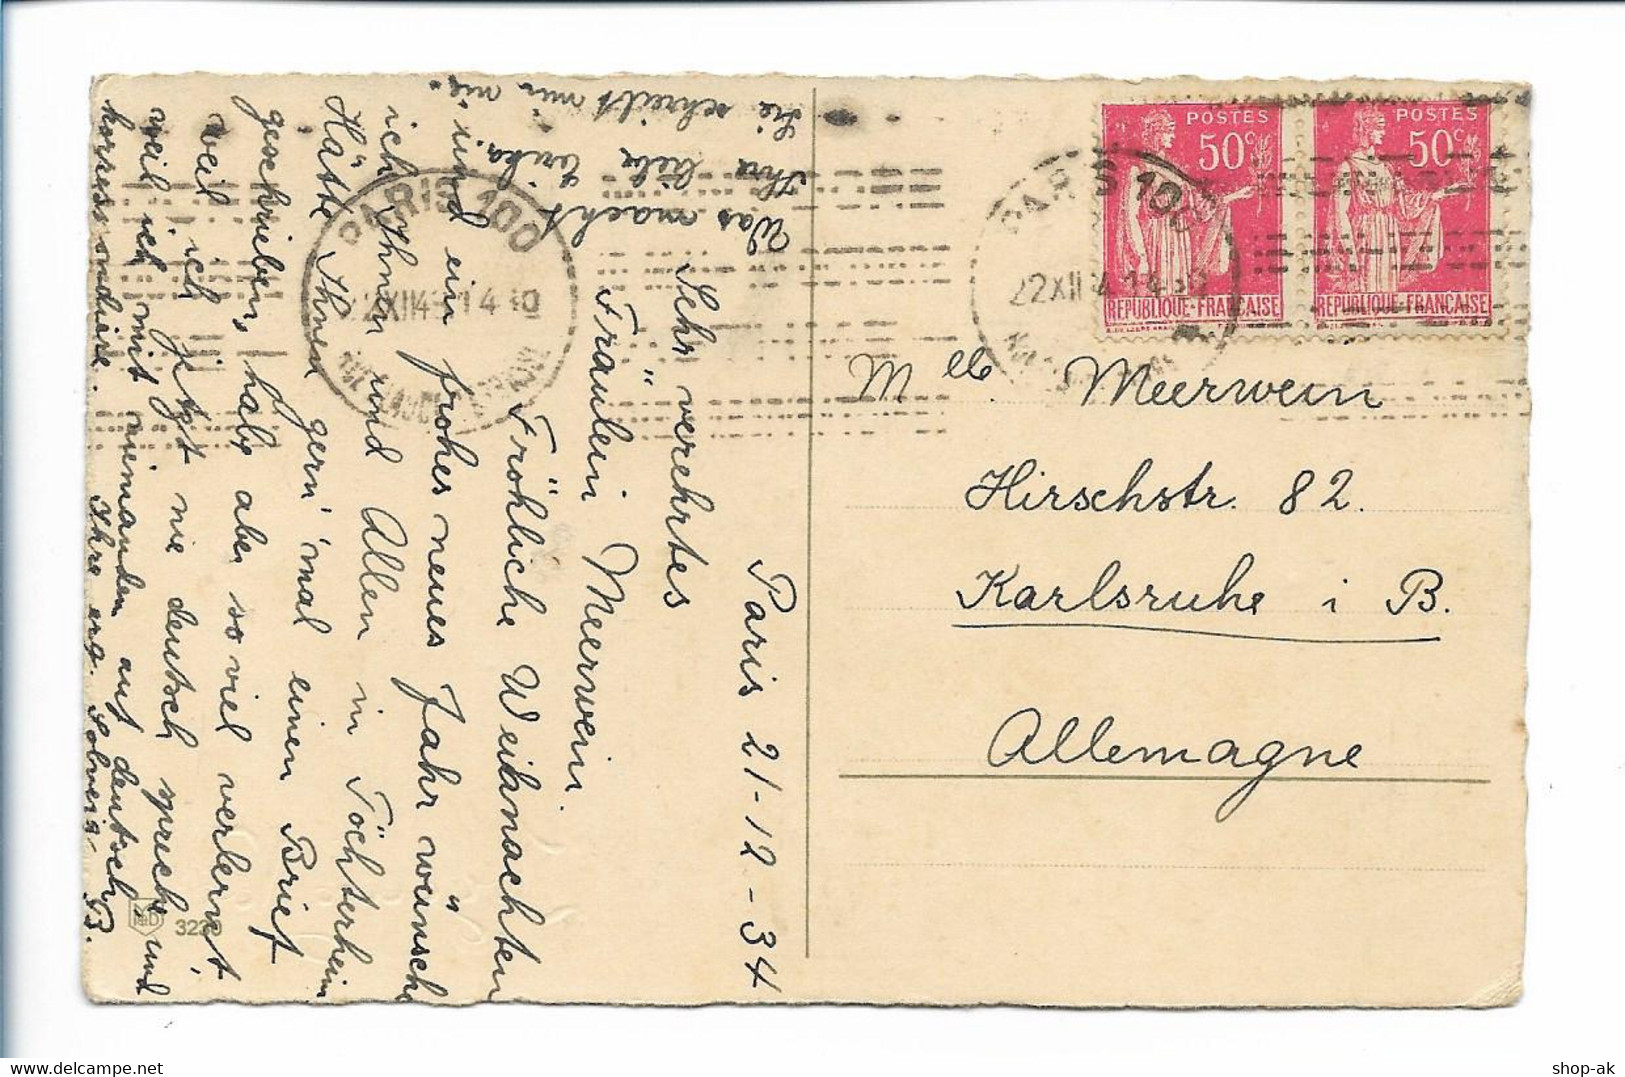 Paris 21-12-34
Sehr verehrtes
Fräulein Meerwein.
Fröhliche Weihnachten
und ein frohes neues Jahr wünsch
ich Ihnen und Allen in Töchterheim
Hätte Ihnen gern 'mal einen Brief
geschrieben, habe aber so viel verlernt,
weil ich jetzt nie deutsch spreche und
weil ich mit niemanden auf deutsch
korrespondiere.
Ihre erg. Solveig B.
Was macht
Ihre liebe Erika.
Sie schreibt mir nie.
POSTES
50c
REPUBLIQUE-FRANÇAISE
POSTES
50c
REPUBLIQUE-FRANÇAISE
PARIS 100
22 XII 14 30
PARIS 100
Mlle Meerwein
Hirschstr. 82.
Karlsruhe i B.
Allemagne
shop-ak